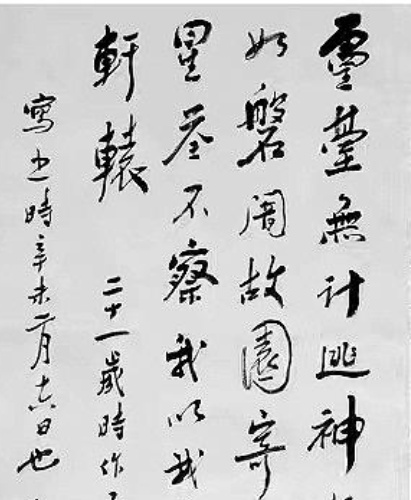 靈臺無計逃神
如磐闇故園寄
星荃不察我以我
軒轅 二十一歲時作
寫之時辛未二月十六日也